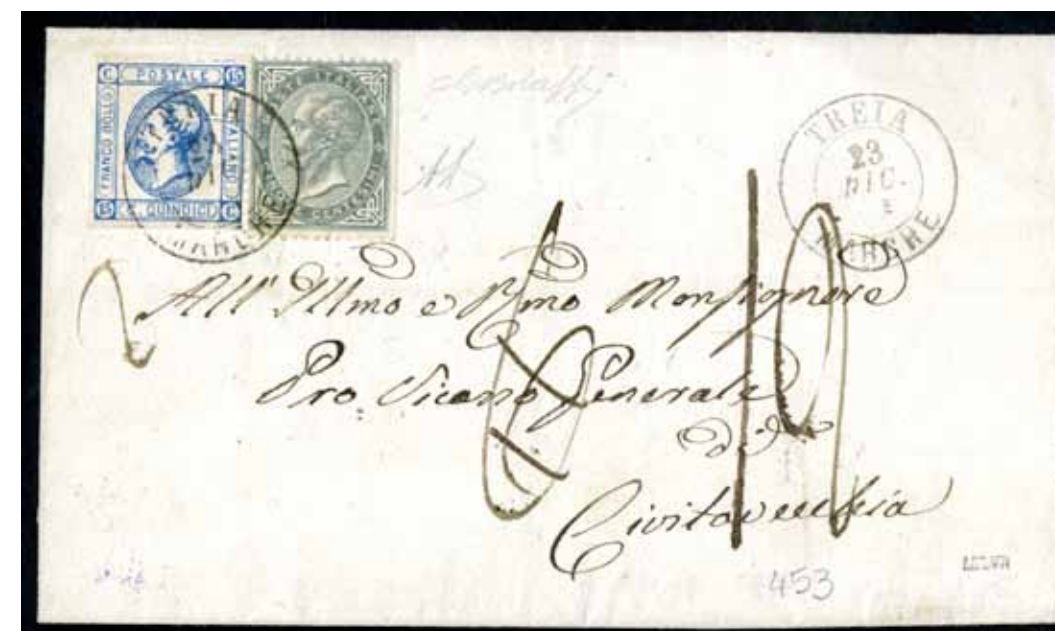 C POSTALE 15
FRANCO BOLLO
ITALIANO
15 C. QUINDICI C
TREIA
MARCHE
TREIA
23
DIC.
MARCHE
2
19
All' Illmo e Rmo Monsignore
Pro Vicario Generale
di
Civitavecchia
453